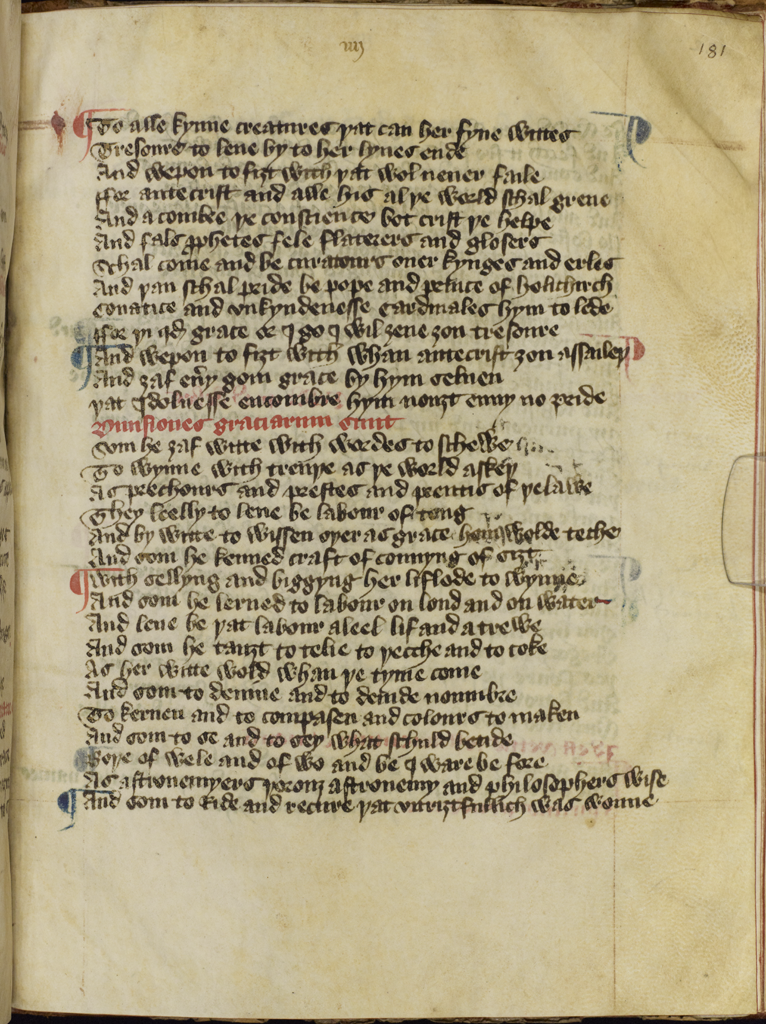 iiij
181
To alle kynne creatures þat can her fyue wittes
Tresoure to leue by to her lyues ende
And wepon to fiȝt with þat wol neuer faile
ffor antecrist and alle his al þe world schal greue
And acombre þe conscience bot crist þe helpe
And fals ꝓphetes fele flaterers and glosers
Schal come and be curatours ouer kynges and erles
And þan schal pride be pope and prince of holichirch
Couatice and vnkyndenesse Cardinales hym to lede
ffor þi qd grace er I go I wil ȝeue ȝou tresoure
And wepon to fiȝt with whan antecrist ȝou assaileþ
And ȝaf eu̅y gom grace by hym seluen
þat Idolnesse encombre hym nouȝt enuy no pride
Diuisiones graciarum sunt
Som he ȝaf witte with wordes to schewe
To wynne with treuþe as þe world askeþ
As prechours and prestes and prentis of þe lawe
They leelly to leue be labour of tong
And by witte to wissen oþer as grace hem wolde teche
And som he kenned craft of connyng of siȝt
With sellyng and biggyng her liflode to wynne
And som he lerned to labour on lond and on water
And leue be þat labour a leel lif and a trewe
And som he tauȝt to telie to þecche and to coke
As her witte wold whan þe tyme come
And som to deuine and to deuide noumbre
To keruen and to compasen and colours to maken
And som to se and to sey what schuld betide
Boþe of wele and of wo and be I ware be fore
As astronemyers þorouȝ astronemy and philosophers wise
And som to Ride and recure þat vnriȝtfullich was wonne